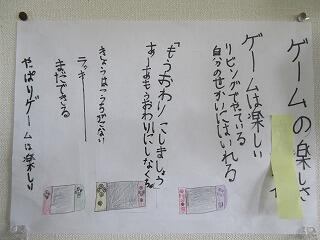 ゲームの楽しさ
ゲームは楽しい
リビングでやっている
自分のせかいにはいれる
「もうおわりにしましょう
あーあもうおわりにしなくちゃ
きょうはつうちがこない
ラッキー
まだできる
やっぱりゲームは楽しい